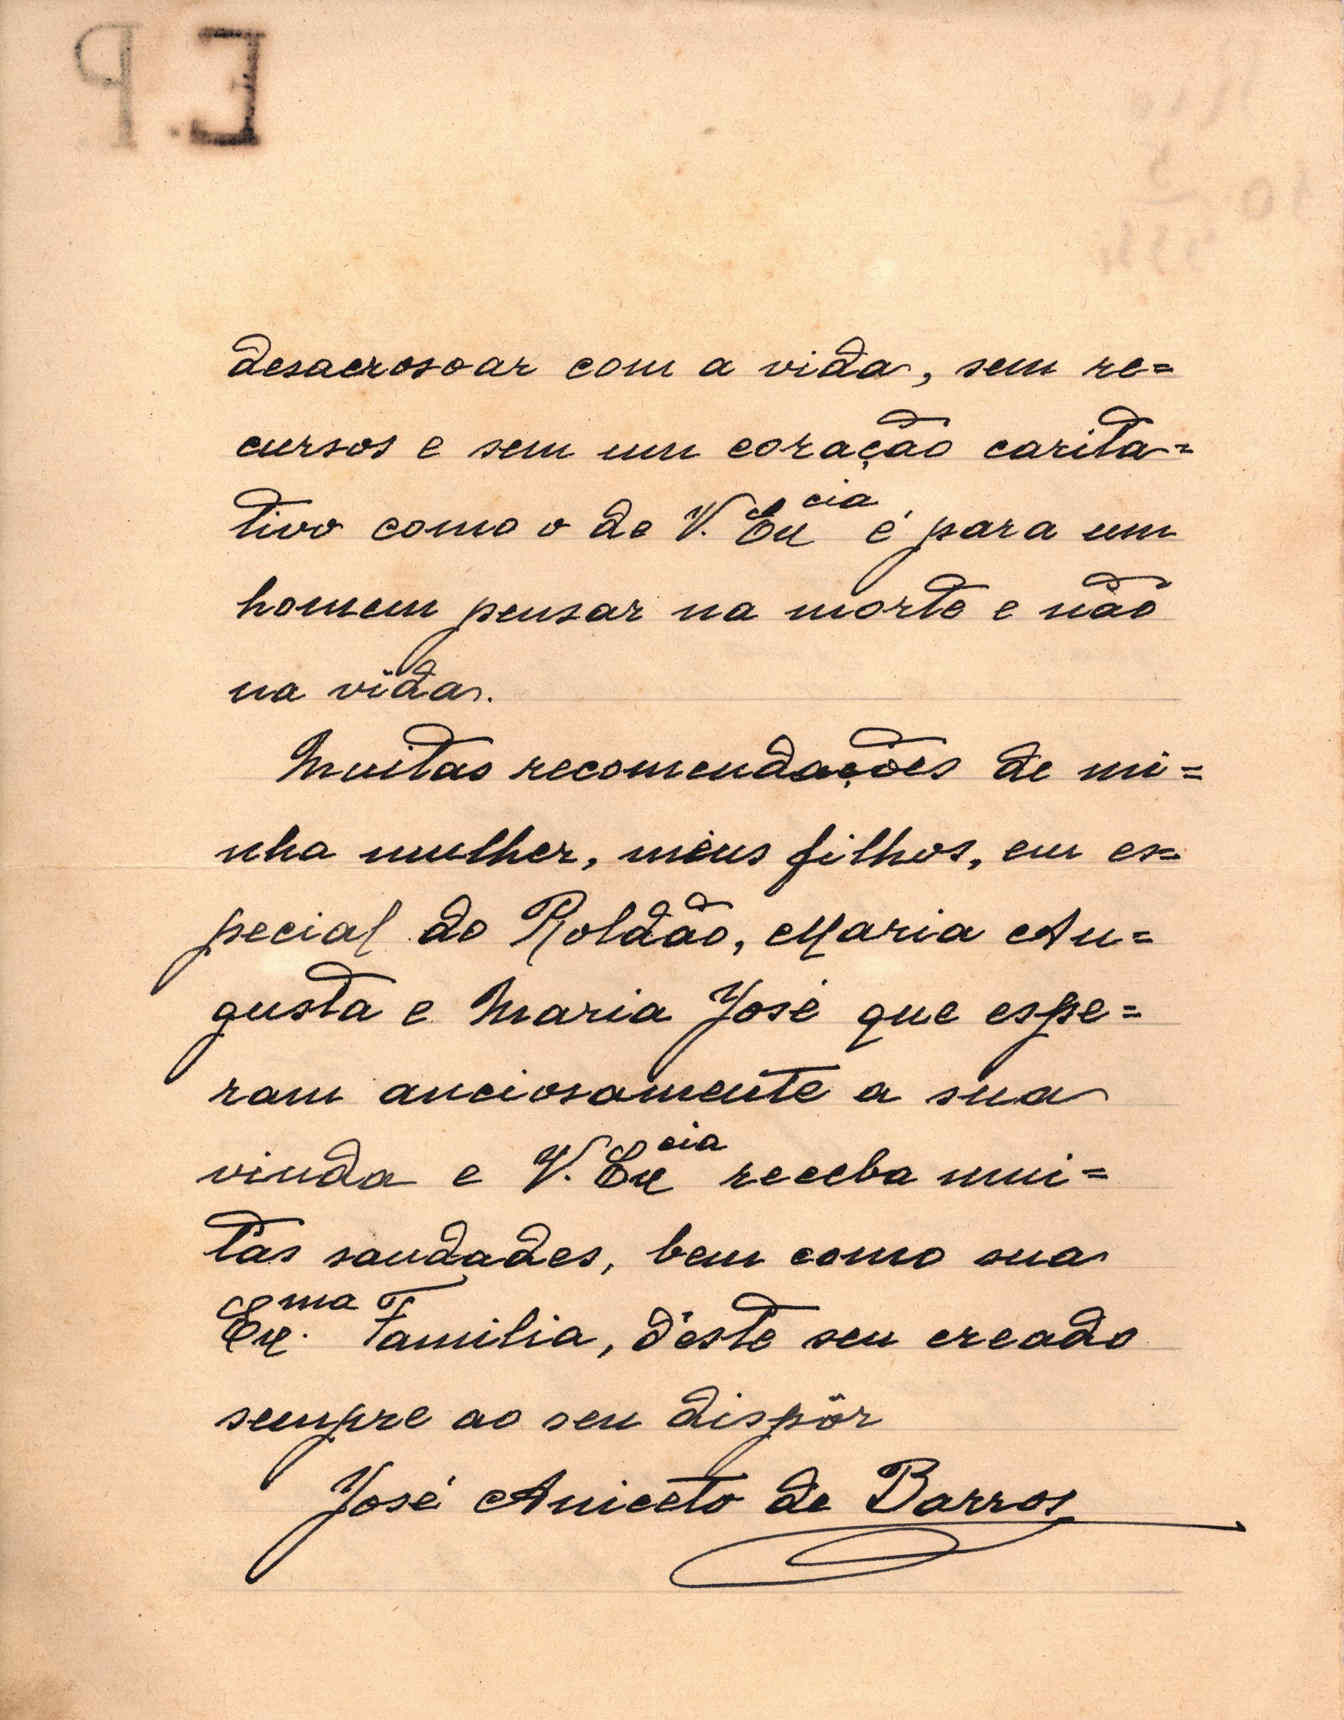 E.P
desacrosoar com a vida, sem re=
cursos e sem um coração carita=
tivo como o de V. Ex cia é para um
homem pensar na morte e não
na vida.
Muitas recomendações de mi=
nha mulher, meus filhos, em es=
pecial do Roldão, Maria Au=
gusta e Maria José que espe=
ram anciosamente a sua
vinda e V. Ex cia receba mui=
tas saudades, bem como sua
Ex.ma Familia, d'este seu creado
sempre ao seu dispôr
José Aniceto de Barros